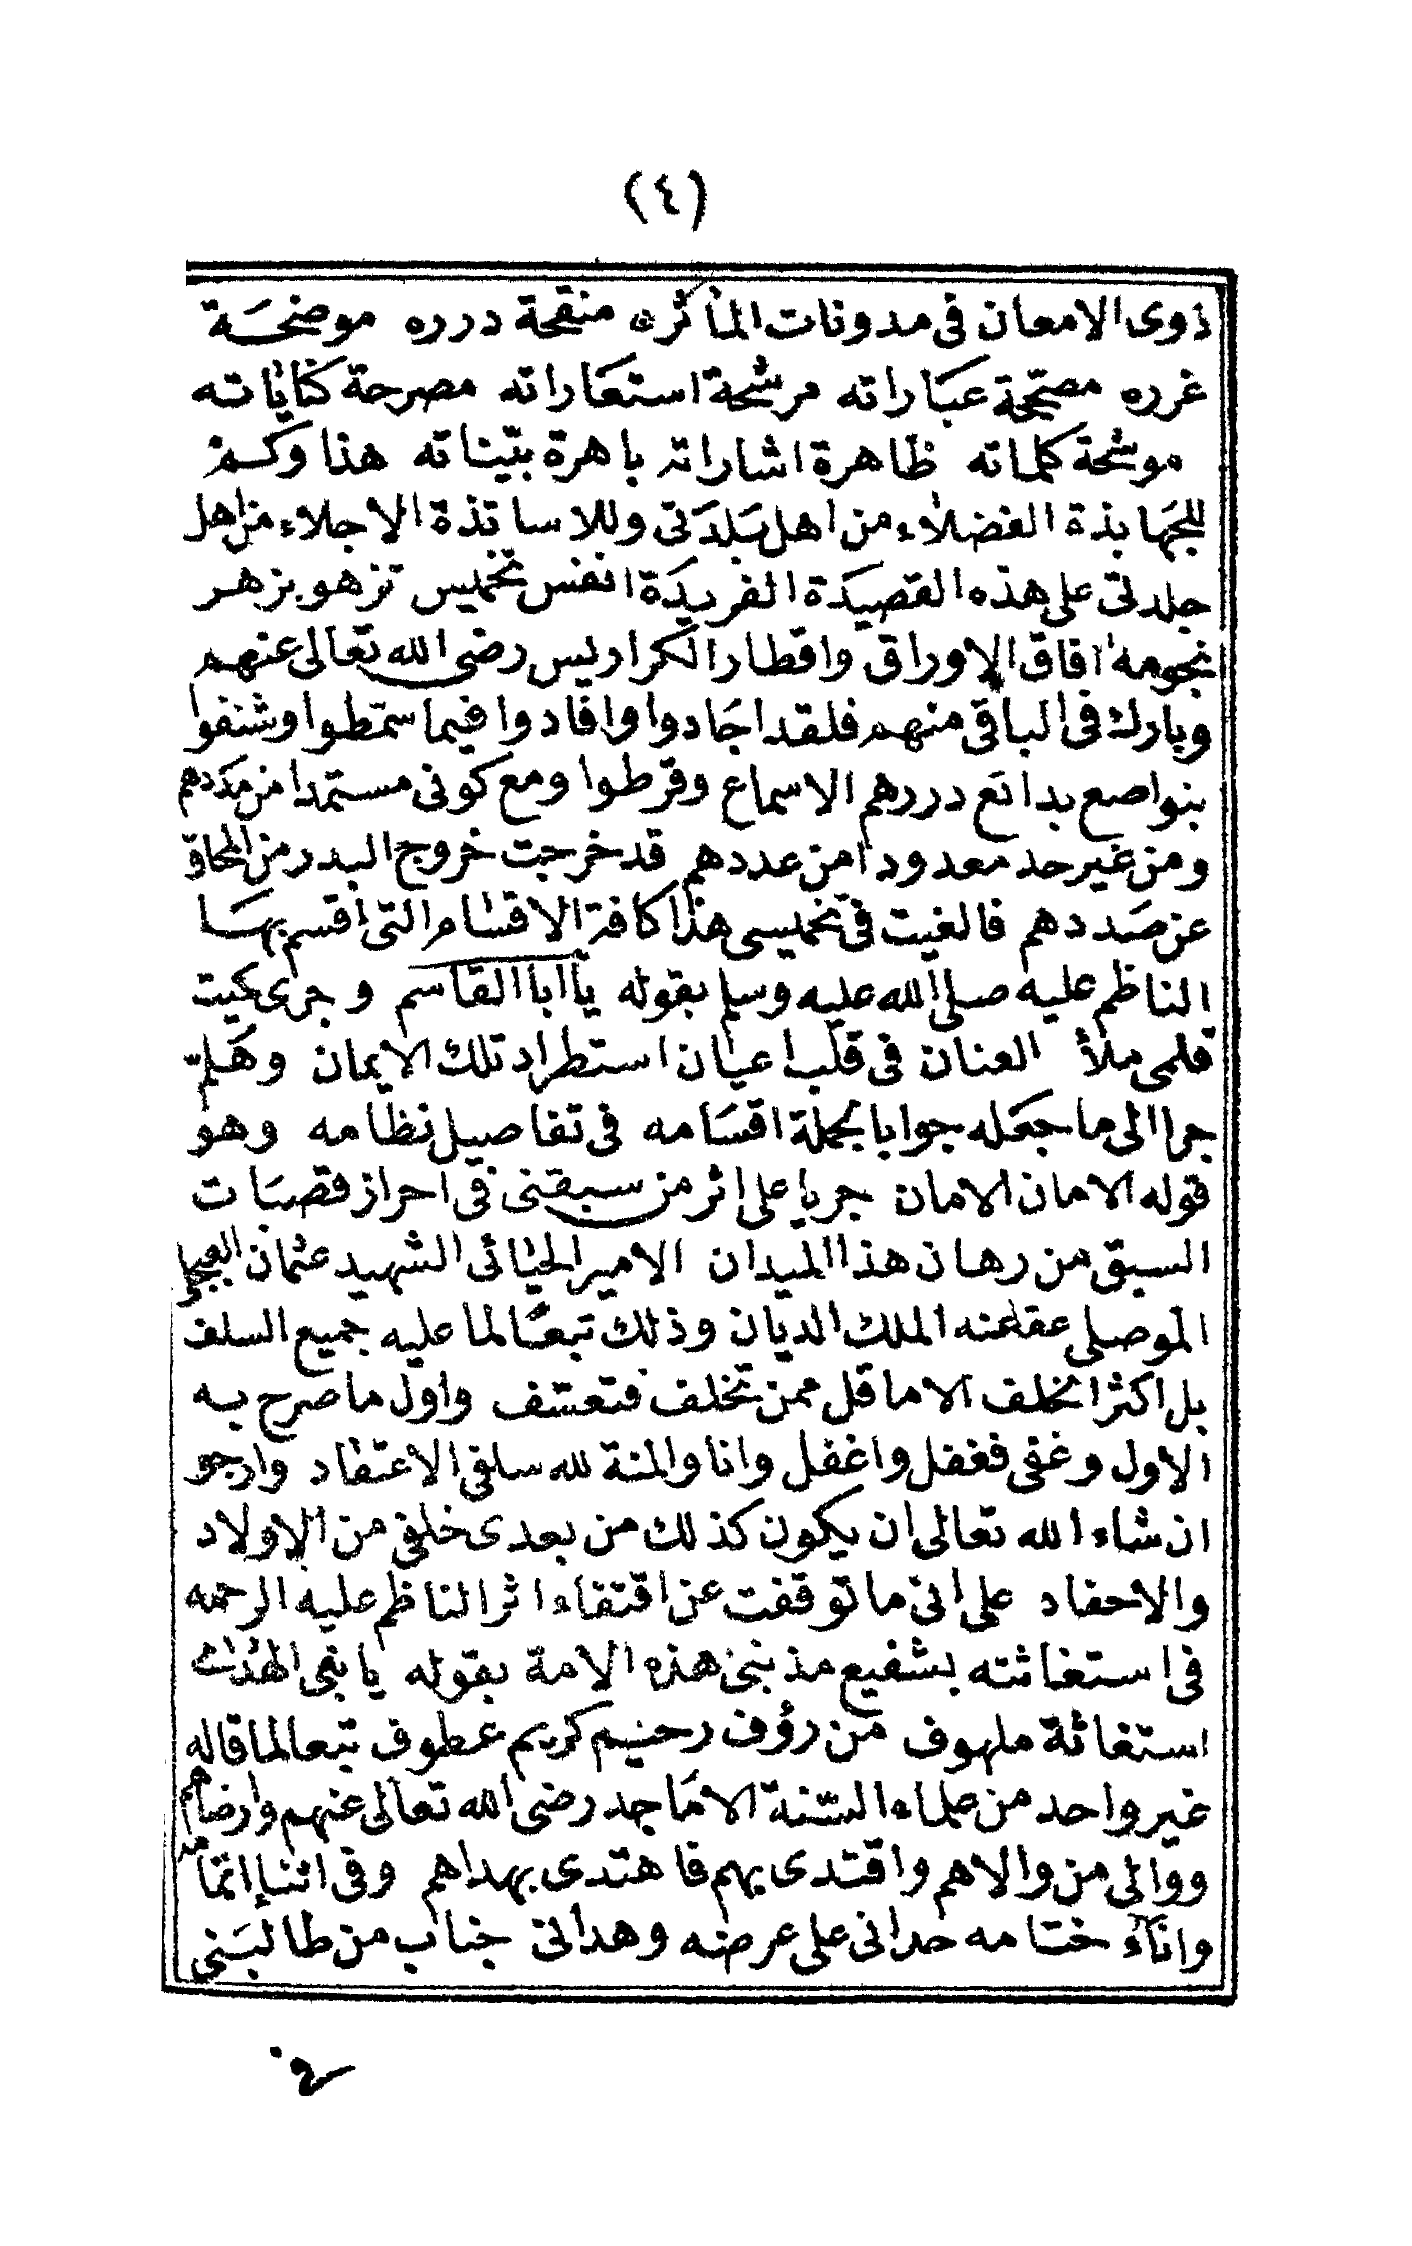 (٤)
ذوى الامعان فى مدونات المأثره منقحة درره موضحة
غرره مصححة عباراته مرشحة استعاراته مصرحة كناياته
موشحة كلماته ظاهرة اشاراته باهرة بيناته هذا وكم
للجهابذة الفضلاء من اهل بلدتى وللاساتذة الاجلاء من اهل
جلدتى على هذه القصيدة الفريدة انفس تخميس تزهو بزهر
نجومه افاق الاوراق واقطار الكراريس رضى الله تعالى عنهم
وبارك فى الباقى منهم فلقد اجادوا وافادوا فيما سمطوا وشنفوا
بنواصع بدائع دررهم الاسماع وقرطوا ومع كونى مستمدا من مددهم
ومن غير حد معدودا من عددهم قد خرجت خروج البدر من المحاق
عن صددهم فالغيت فى تخميسى هذا كافة الاقسام التى اقسم بها
الناظم عليه صلى الله عليه وسلم بقوله يا ابا القاسم وجرى كيت
قلمى ملأ العنان فى قلب اعيان استطراد تلك الايمان وهلمّ
جرا الى ما جعله جوابا لجملة اقسامه فى تفاصيل نظامه وهو
قوله الامان الامان جريا على اثر من سبقنى فى احراز قصبات
السبق من رهان هذا الميدان الامير الحيائى الشهيد عثمان
الموصلى عفا عنه الملك الديان وذلك تبعا لما عليه جميع السلف
بل اكثر الخلف الا ما قل ممن تخلف فتعسف واول ما صرح به
الاول وغفى فغفل واغفل وانا والمنة لله سلفى الاعتقاد وارجو
ان شاء الله تعالى ان يكون كذلك من بعدى خلفى من الاولاد
والاحفاد على انى ما توقفت عن اقتفاء اثر الناظم عليه الرحمه
فى استغاثته بشفيع مذنبى هذه الامة بقوله يا نبى الهدى
استغاثة ملهوف من رؤف رحيم كريم عطوف تبعا لما قاله
غير واحد من علماء السنة الاماجد رضى الله تعالى عنهم وارضاهم
ووالى من والاهم واقتدى بهم فاهتدى بهداهم وفى اثناء اتمامه
واناء ختامه حدانى على عرضه وهدانى جناب من طالبنى
فى